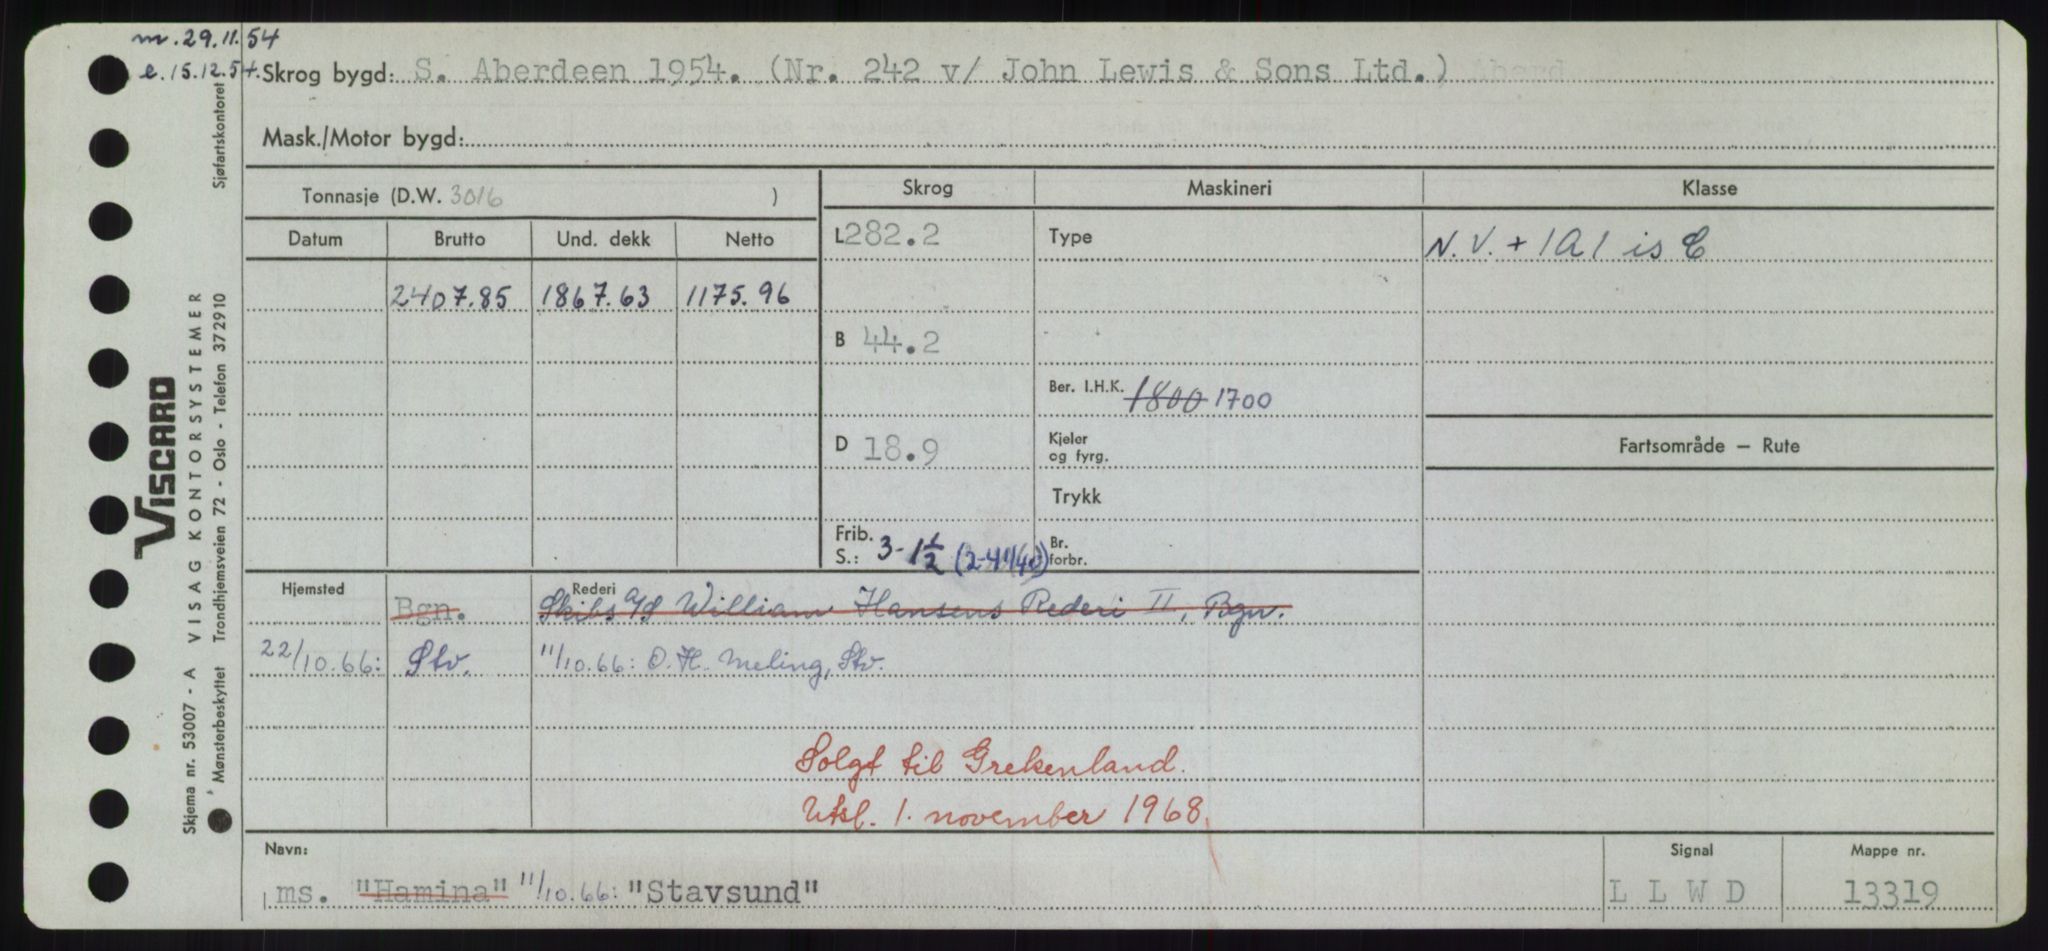 m. 29.11.54
e. 15.12.54.
Skrog bygd: S. Aberdeen 1954. (Nr. 242 v/ John Lewis & Sons Ltd.)
Mask./Motor bygd:
Tonnasje (D.W. 3016 )
Skrog Maskineri Klasse
Datum Brutto Und. dekk Netto
L 282.2 Type N.V. + 1A1 is C
2407.85 1867.63 1175.96
B 44.2
Ber. I.H.K. 1800 1700
D 18.9 Kjeler og fyrg.
Fartsområde — Rute
Trykk
Frib. S.: 3-1½ (2-4 1/4) Br. forbr.
Hjemsted Rederi
Bgn. Skibs a/s William Hansens Rederi II, Bgn.
22/10.66: Stv. 11/10.66: O. H. Meling, Stv.
Solgt til Grekenland.
Utsl. 1. november 1968.
Navn: Signal Mappe nr.
ms. "Hamina" 11/10.66: "Stavsund" L L W D 13319
VISCARD
Skjema nr. 53007 - A VISAG KONTORSYSTEMER
Mønsterbeskyttet Trondhjemsveien 72 - Oslo - Telefon 372910 Sjøfartskontoret